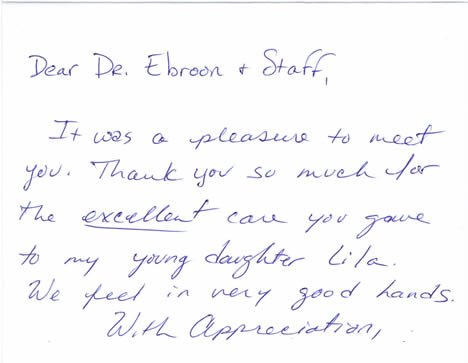 Dear Dr. Ebroon + Staff,
It was a pleasure to meet
you. Thank you so much for
the excellent care you gave
to my young daughter Lila.
We feel in very good hands.
With Appreciation,